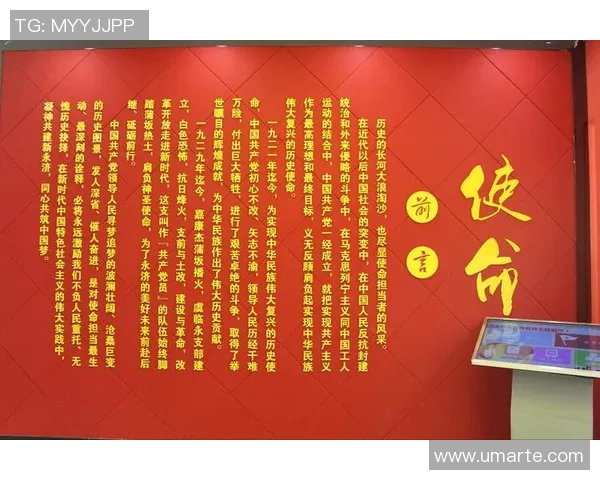 TG: MYYJJPP
使命
前言
历史的长河大浪淘沙，也尽显使命担当者的风采。
在近代以后中国社会的突变中，在中国人民反抗封建
统治和外来侵略的斗争中，在马克思列宁主义同中国工人
运动的结合中，中国共产党一经成立，就把实现共产主义
作为最高理想和最终目标，义无反顾肩负起实现中华民族
伟大复兴的历史使命。
一九二一年迄今，为实现中华民族伟大复兴的历史使
命，中国共产党初心不改、矢志不渝，领导人民历经千难
万险，付出巨大牺牲，进行了艰苦卓绝的斗争，取得了举
世瞩目的辉煌成就，为中华民族作出了伟大历史贡献。
一九二九年迄今，嘉康杰蒲坂播火，虞临永支部建
立，白色恐怖，抗日烽火，支前与土改，建设与革命，改
革开放走进新时代，这支叫作“共产党员”的队伍始终脚
踏蒲坂热土，肩负神圣使命，为了永济的美好未来前赴后
继、砥砺前行。
中国共产党领导人民寻梦追梦的波澜壮阔、沧桑巨变
的历史图景，发人深省、催人奋进，是对使命担当最生
动、最深刻的诠释，必将永远激励我们不负人民重托、无
愧历史抉择，在新时代中国特色社会主义的伟大实践中，
凝神共建新永济，同心共筑中国梦。
www.umarte.com